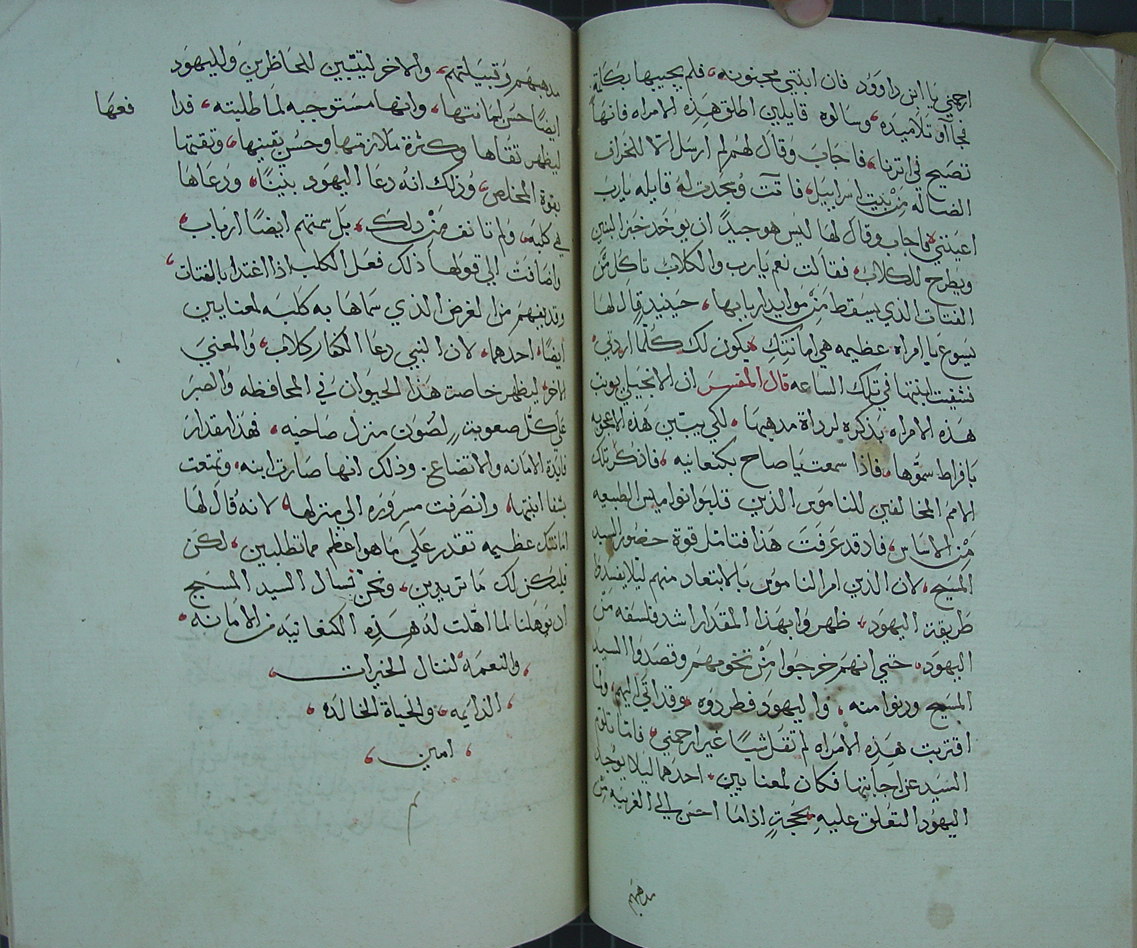 ارحمني يا ابن داوود فان ابنتي مجنونه، فلم يجيبها بكلمة
فجااو تلاميده، وسالوه قايلين اطلق هذه الامراه فانها
تصيح في اترنا، فاجاب وقال لهم لم ارسل الا للخراف
الضاله من بيت اسراييل، فاتت وسجدت له قايله يارب
اعينني، فاجاب وقال لها ليس هو جيداً ان يوخد خبز البنين
ويطرح للكلاب، فقالت نعم يارب والكلاب تاكل من
الفتات الذي يسقط من موايد اربابها، حينيد قال لها
يسوع ياامراه عظيمه هي امانتك، يكون لك كلما اردتي،
فشفيت ابنتها في تلك الساعه قال المفسر ان الانجيلي يونب
هذه الامراه بدكره لرداة مدهبها، لكي يبين هذه الاعجوبه
بافراط سموها، فاذا سمعت ياصاح بكنعانيه، فادكر تلك
الامم المخالفين للناموس الذين قلبوا نواميس الطبيعه
من الاساس، فاد قد عرفت هذا فتامل قوة حضور السيد
المسيح، لان الذين امر الناموس بالابتعاد منهم ليلا يفسدوا
طريقة اليهود، ظهروا بهذا المقدار اشد فلسفه من
اليهود، حتي انهم خرجوا من تخومهم وقصدوا السيد
المسيح ودنوا منه، واليهود فطردوه وقد اتي اليهم، ولما
اقتربت هذه الامراه لم تقل شيا غير ارحمني، فاما تاني
السيد عن اجابتها فكان لمعنايين، احدهما ليلا يوجد
اليهود التعلق عليه بحجةٍ اذا ما احسن الي الغريبه من
مدهبهم
مدهبهم وقبيلتهم، والاخر ليتبين للحاظرين ولليهود
ايضاً حسن امانتها، وانها مستوجبه لما طلبته، فدا فعها
ليظهر نقاها وكثرة ملازمتها وحسن يقينها، وتقتها
بقوة المخلص، وذلك انه دعا اليهود بنيناً، ودعاها
هي كلبه، ولم تانف من دلك، بل سمتهم ايضاً ارباب،
واضافت الي قولها ذلك فعل الكلب اذا اغتدا بالفتات،
وقد يفهم من الغرض الذي سماها به كلبه لمعنايين
ايضاً، احدهما، لان النبي دعا الكفار كلاب، والمعني
الاخر ليظهر خاصة هذا الحيوان في المحافظه والصبر
علي كل صعوبةٍ لصون منزل صاحبه، فهذا مقدار
فايدة الامانه والاتضاع، وذلك انها صارت ابنه، وتمتعت
بشفا ابنتها، وانصرفت مسروره الي منزلها، لانه قال لها
امانتك عظيمه تقدر علي ما هو اعظم مما تطلبين، لكن
فليكن لك ما تريدين، ونحن نسال السيد المسيح
ان يوهلنا لما اهلت له هذه الكنعانيه من الامانه،
والنعمه لننال الخيرات،
الدايمه، والحياة الخالده،
امين،